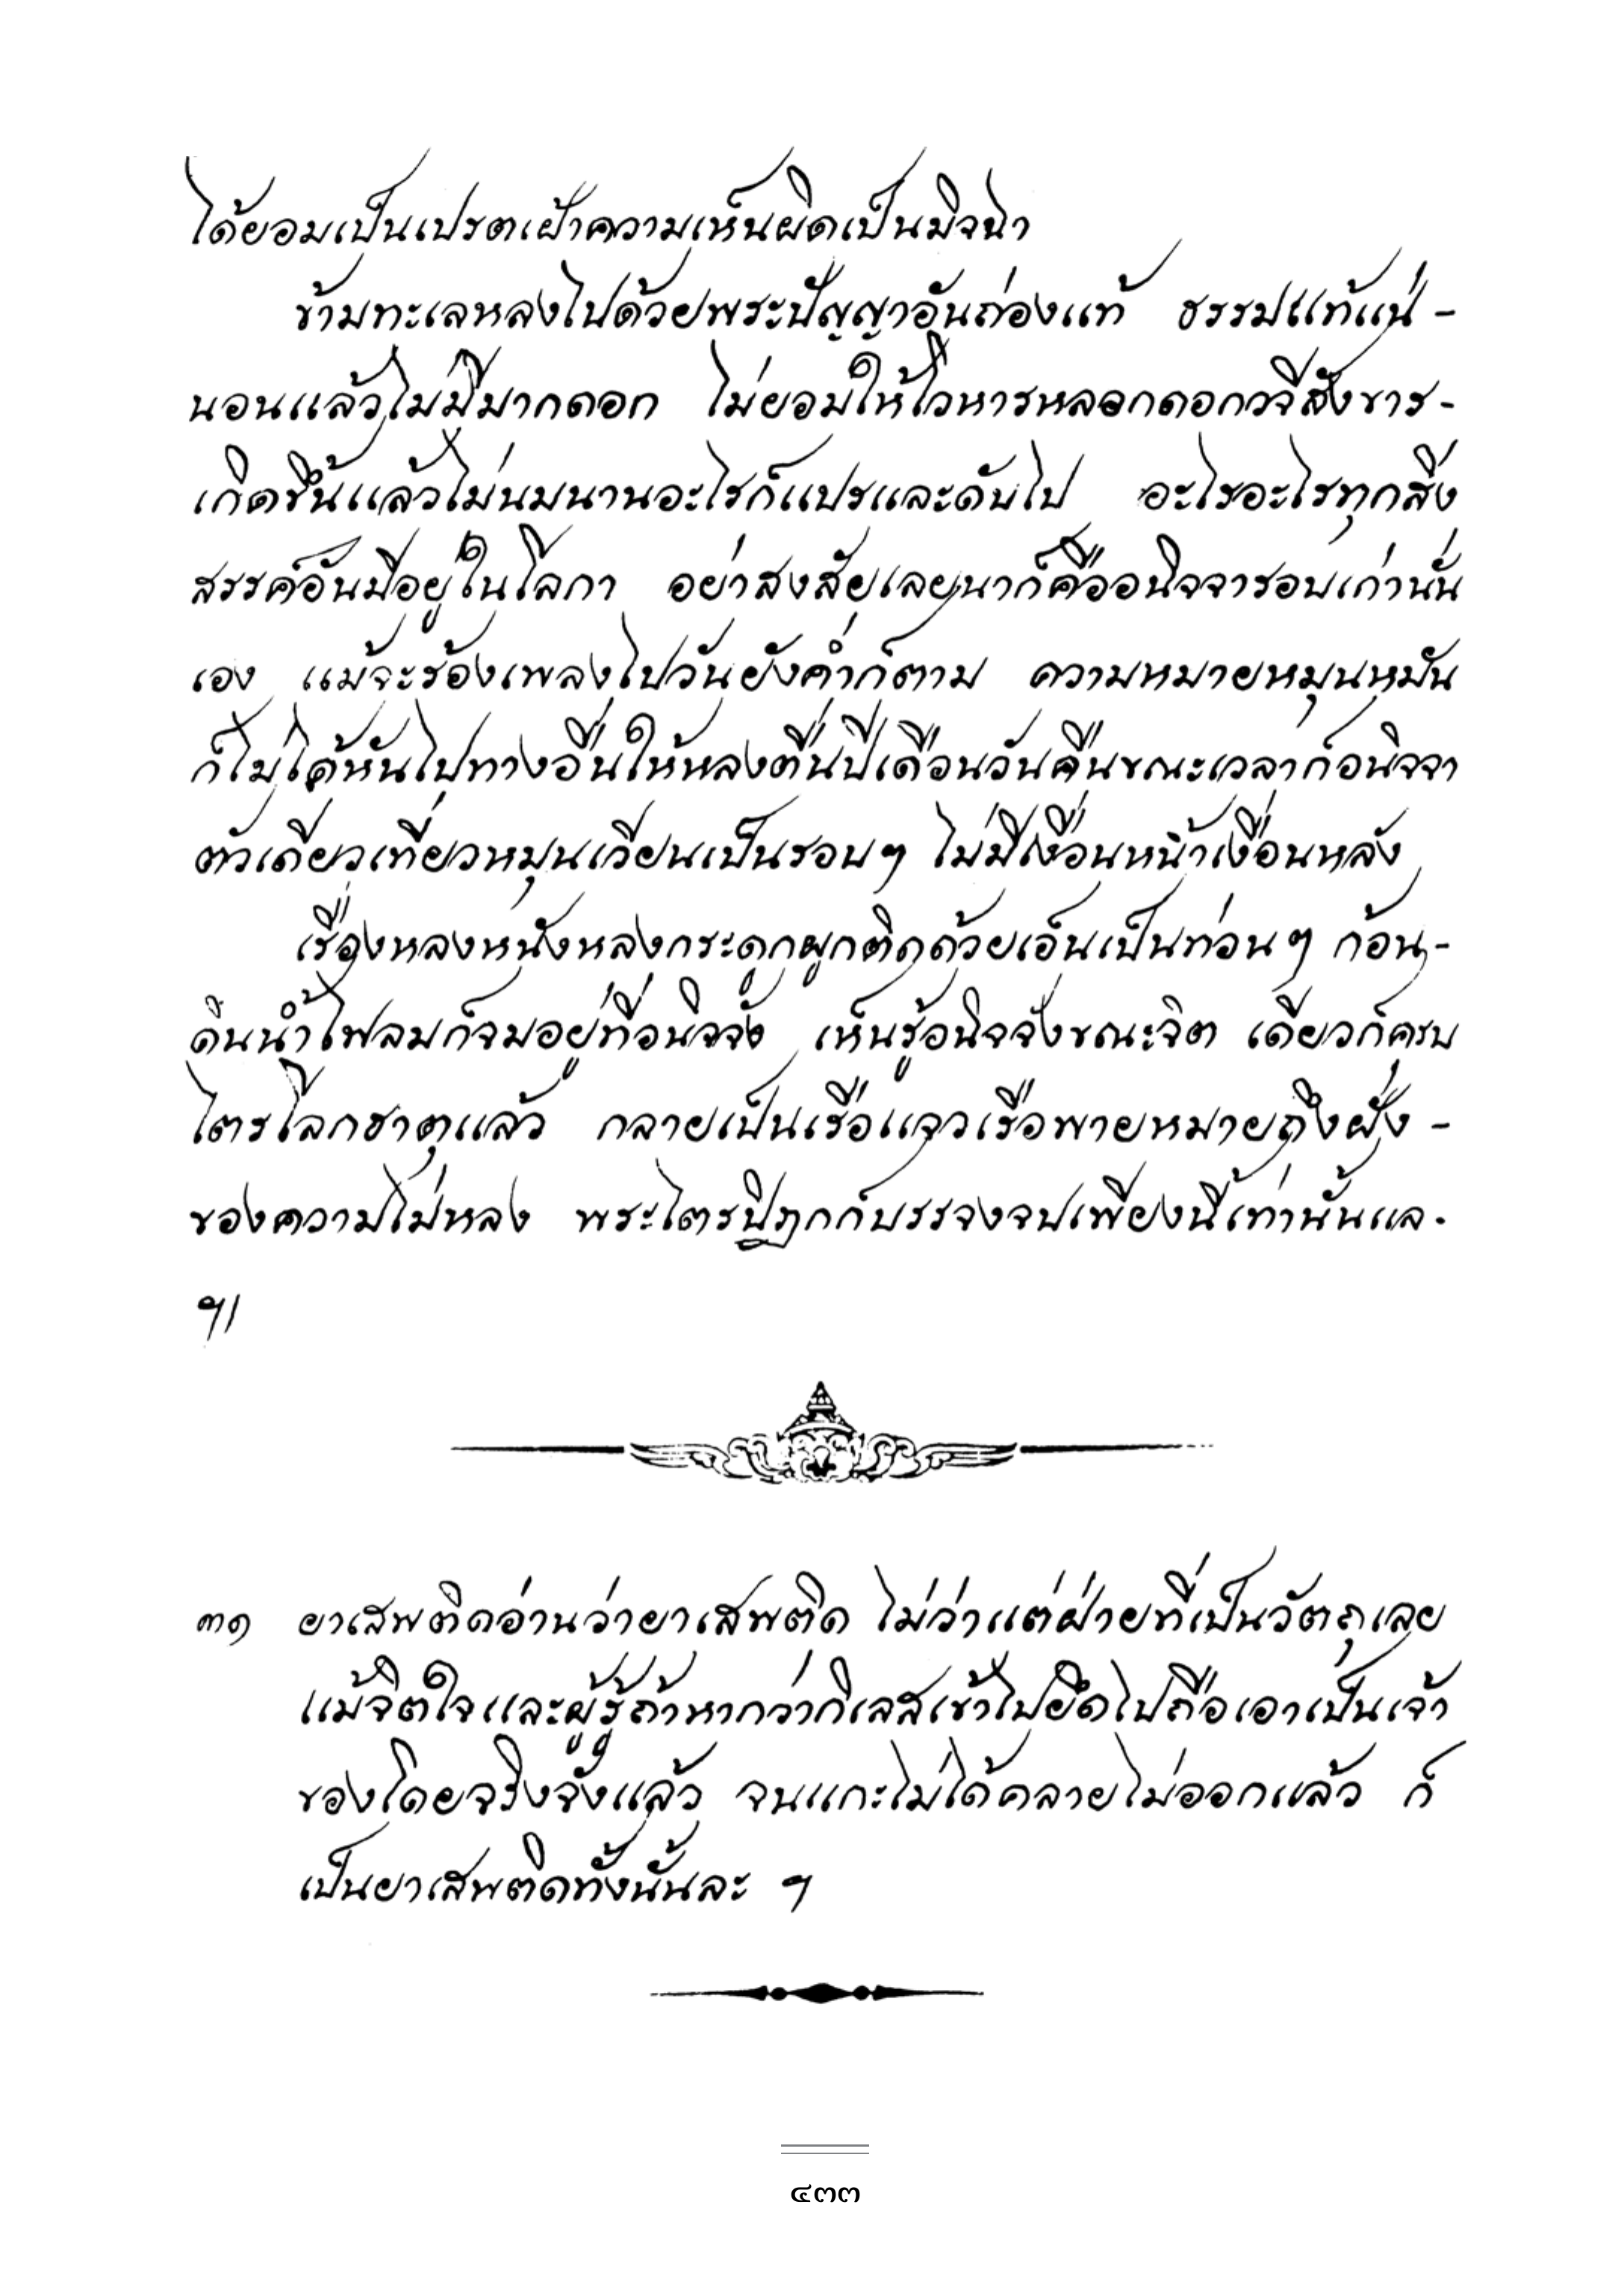 ได้ยอมเป็นเปรตเฝ้าความเห็นผิดเป็นมิจฉา
ข้ามทะเลหลงไปด้วยพระปัญญาอันถ่องแท้ ธรรมแท้แน่-
นอนแล้วไม่มีมากดอก ไม่ยอมให้โวหารหลอกดอกวจีสังขาร-
เกิดขึ้นแล้วไม่นมนานอะไรก็แปรและดับไป อะไรอะไรทุกสิ่ง
สรรค์อันมีอยู่ในโลกา อย่าสงสัยเลยนาก็คืออนิจจารอบเก่านั่น
เอง แม้จะร้องเพลงไปวันยังค่ำก็ตาม ความหมายหมุนหมัน
ก็ไม่ได้หันไปทางอื่นให้หลงตื่นปีเดือนวันคืนขณะเวลาก็อนิจจา
ตัวเดียวเที่ยวหมุนเวียนเป็นรอบๆ ไม่มีเงื่อนหน้าเงื่อนหลัง
เรื่องหลงหนังหลงกระดูกผูกติดด้วยเอ็นเป็นท่อนๆ ก้อน-
ดินน้ำไฟลมก็จมอยู่ที่อนิจจัง เห็นรู้อนิจจังขณะจิต เดียวก็ครบ
ไตรโลกธาตุแล้ว กลายเป็นเรือแจวเรือพายหมายถึงฝั่ง-
ของความไม่หลง พระไตรปิฎกก็บรรจงจบเพียงนี้เท่านั้นแล.
ฯ|
๓๑ ยาเสพติดอ่านว่ายาเสพติด ไม่ว่าแต่ฝ่ายที่เป็นวัตถุเลย
แม้จิตใจและผู้รู้ถ้าหากว่ากิเลสเข้าไปยึดไปถือเอาเป็นเจ้า
ของโดยจริงจังแล้ว จนแกะไม่ได้คลายไม่ออกแล้ว ก็
เป็นยาเสพติดทั้งนั้นละ ฯ
๔๓๓